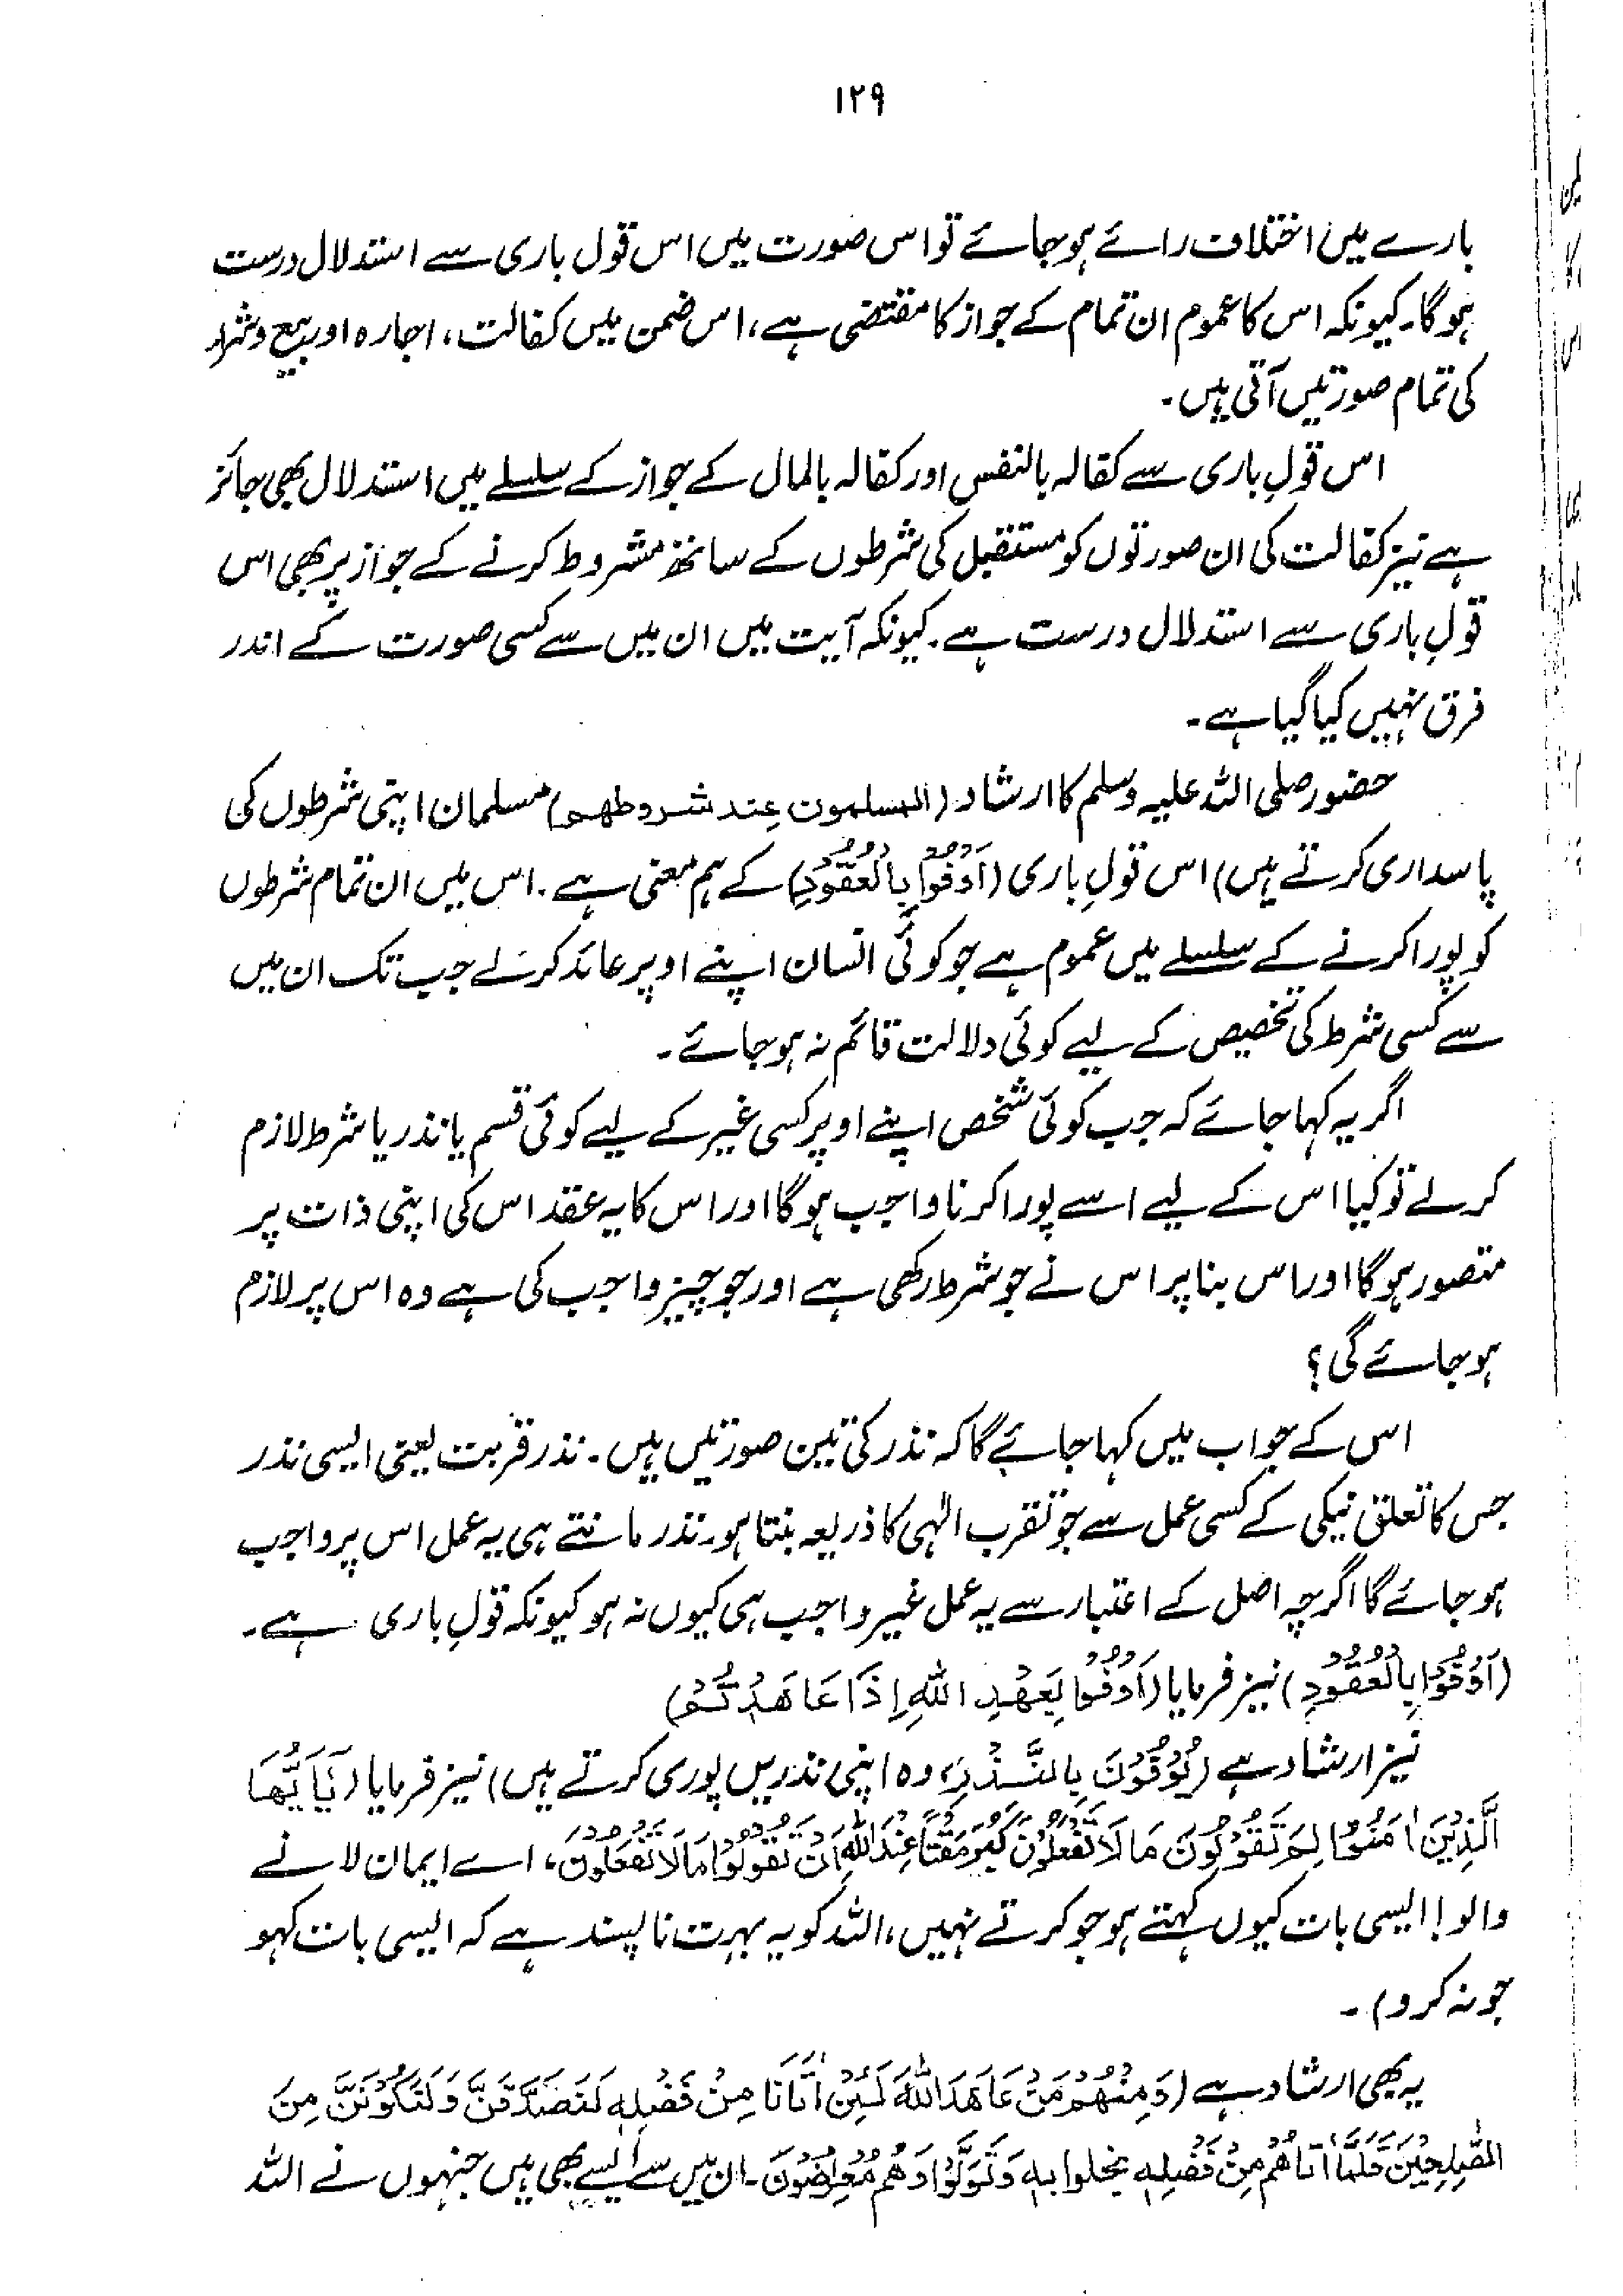 ۱۲۹
بارے میں اختلاف رائے ہو جائے تو اس صورت میں اس قول باری سے استدلال درست
ہوگا۔ کیونکہ اس کا عموم ان تمام کے جواز کا مقتضی ہے، اس ضمن میں کفالت، اجارہ اور بیع و شراء
کی تمام صورتیں آتی ہیں۔
اس قولِ باری سے کفالہ بالنفس اور کفالہ بالمال کے جواز کے سلسلے میں استدلال بھی جائز
ہے نیز کفالت کی ان صورتوں کو مستقبل کی شرطوں کے ساتھ مشروط کرنے کے جواز پر بھی اس
قولِ باری سے استدلال درست ہے۔ کیونکہ آیت میں ان میں سے کسی صورت کے اندر
فرق نہیں کیا گیا ہے۔
حضور صلی اللہ علیہ وسلم کا ارشاد (المسلمون عِند شروطھم) مسلمان اپنی شرطوں کی
پاسداری کرتے ہیں) اس قولِ باری (اَوْفُوْا بِالْعُقُوْدِ) کے ہم معنی ہے۔ اس میں ان تمام شرطوں
کو پورا کرنے کے سلسلے میں عموم ہے جو کوئی انسان اپنے اوپر عائد کرلے جب تک ان میں
سے کسی شرط کی تخصیص کے لیے کوئی دلالت قائم نہ ہو جائے۔
اگر یہ کہا جائے کہ جب کوئی شخص اپنے اوپر کسی غیر کے لیے کوئی قسم یا نذر یا شرط لازم
کرلے تو کیا اس کے لیے اسے پورا کرنا واجب ہوگا اور اس کا یہ عقد اس کی اپنی ذات پر
متصور ہوگا اور اس بنا پر اس نے جو شرط رکھی ہے اور جو چیز واجب کی ہے وہ اس پر لازم
ہو جائے گی؟
اس کے جواب میں کہا جائے گا کہ نذر کی تین صورتیں ہیں۔ نذر قربت یعنی ایسی نذر
جس کا تعلق نیکی کے کسی عمل سے جو تقرب الٰہی کا ذریعہ بنتا ہو۔ نذر مانتے ہی یہ عمل اس پر واجب
ہو جائے گا اگرچہ اصل کے اعتبار سے یہ عمل غیر واجب ہی کیوں نہ ہو کیونکہ قولِ باری ہے۔
(اَوْفُوْا بِالْعُقُوْدِ) نیز فرمایا (اَوْفُوْا بِعَھْدِ اللّٰہِ اِذَا عَاھَدْتُّمْ)
نیز ارشاد ہے (یُوْفُوْنَ بِالنَّذْرِ، وہ اپنی نذریں پوری کرتے ہیں) نیز فرمایا (یٰٓاَیُّھَا
الَّذِیْنَ اٰمَنُوْا لِمَ تَقُوْلُوْنَ مَا لَا تَفْعَلُوْنَ کَبُرَ مَقْتًا عِنْدَ اللّٰہِ اَنْ تَقُوْلُوْا مَا لَا تَفْعَلُوْنَ، اے ایمان لانے
والو! ایسی بات کیوں کہتے ہو جو کرتے نہیں، اللہ کو یہ بہت ناپسند ہے کہ ایسی بات کہو
جو نہ کرو)۔
یہ بھی ارشاد ہے (وَمِنْھُمْ مَنْ عَاھَدَ اللّٰہَ لَئِنْ اٰتَانَا مِنْ فَضْلِہٖ لَنَصَّدَّقَنَّ وَلَنَکُوْنَنَّ مِنَ
الصّٰلِحِیْنَ فَلَمَّا اٰتَاھُمْ مِنْ فَضْلِہٖ بخلوا بہٖ وَتَوَلَّوْا وَھُمْ مُّعْرِضُوْنَ۔ ان میں سے ایسے بھی ہیں جنہوں نے اللہ